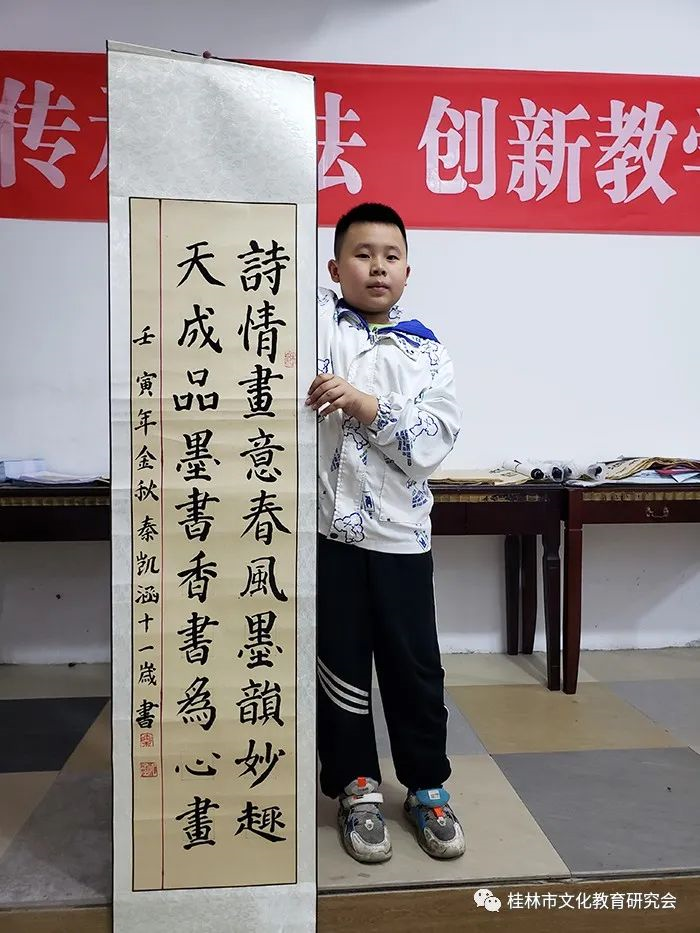 传 法 创新教学
詩情畫意春風墨韻妙趣
天成品墨書香書為心畫
壬寅年金秋秦凯涵十一歲書
桂林市文化教育研究会